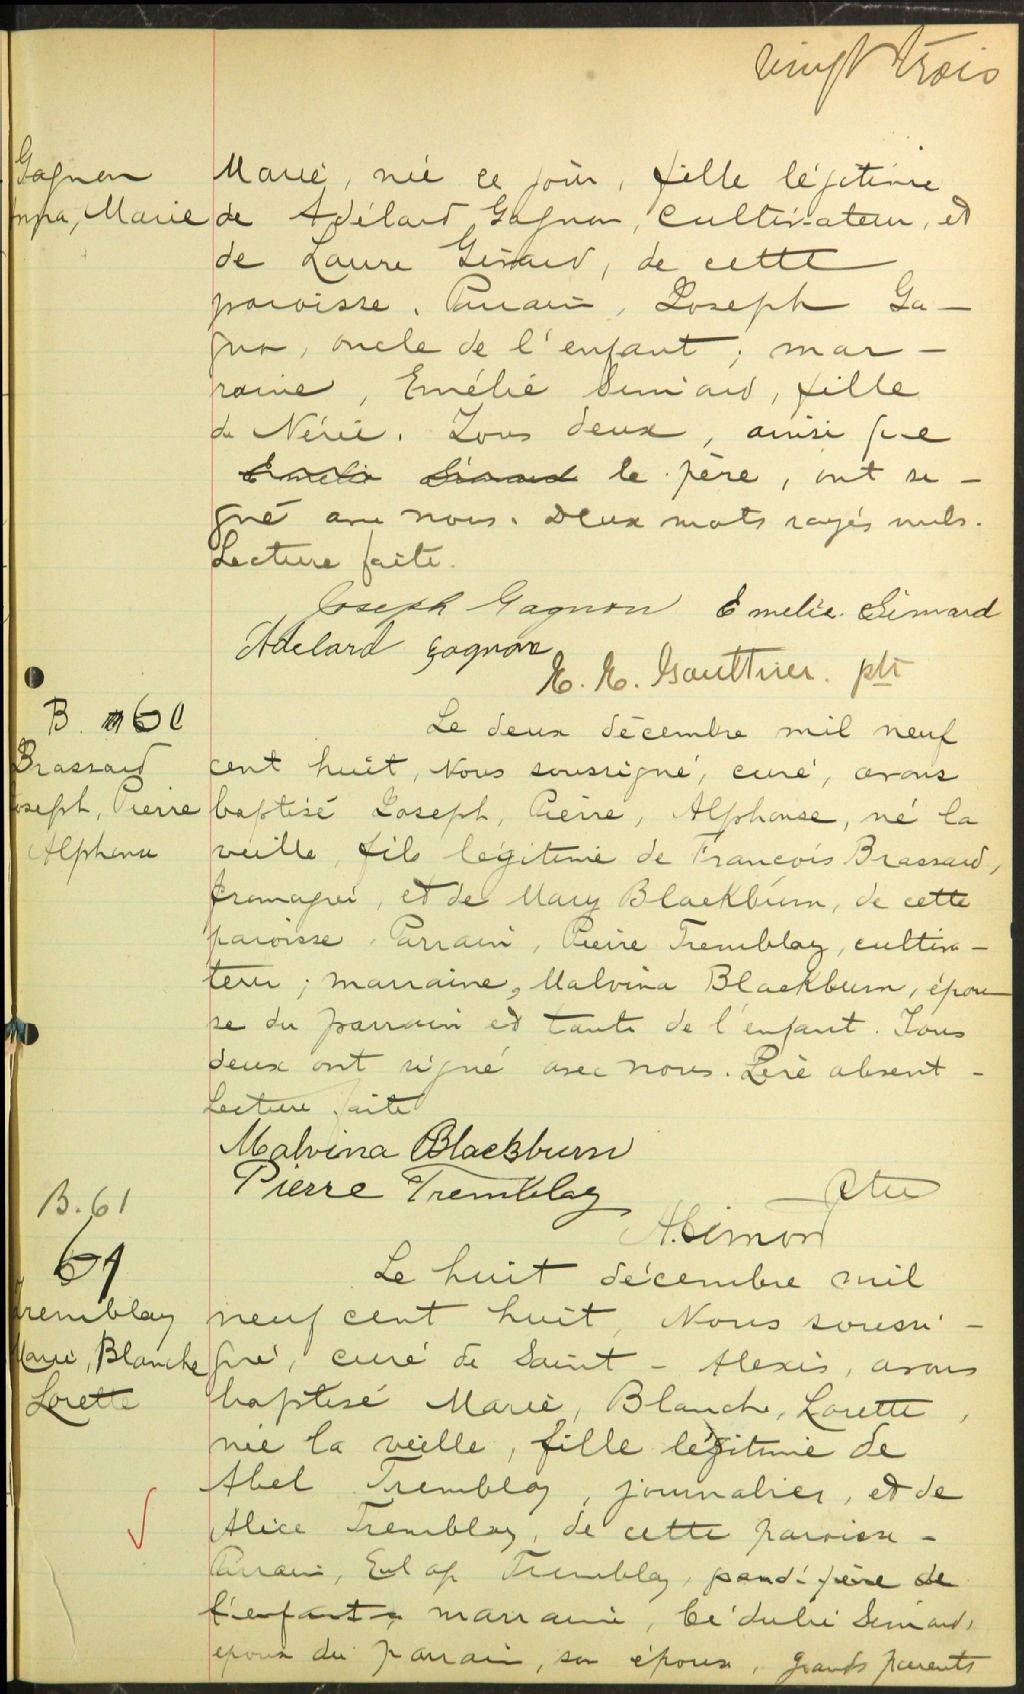 vingt trois
Gagnon
Anna, Marie
Marie, née ce jour, fille légitime
de Adélard Gagnon, cultivateur, et
de Laure Girard, de cette
paroisse. Parrain, Joseph Ga-
gnon, oncle de l'enfant; mar-
raine, Emélie Simard, fille
de Nérée. Tous deux, ainsi que
Emelie Simard le père, ont si-
gné avec nous. Deux mots rayés nuls.
Lecture faite.
Joseph Gagnon Emelie Simard
Adelard gagnon
E. E. Gauthier. ptr
B. 60
Brassard
Joseph, Pierre
Alphonse
Le deux décembre mil neuf
cent huit, Nous soussigné, curé, avons
baptisé Joseph, Pierre, Alphonse, né la
veille, fils légitime de François Brassard,
fromager, et de Mary Blackburn, de cette
paroisse. Parrain, Pierre Tremblay, cultiva-
teur; marraine, Malvina Blackburn, épou-
se du parrain et tante de l'enfant. Tous
deux ont signé avec nous. Père absent -
Lecture faite
Malvina Blackburn
Pierre Tremblay
Ptre
B. 61
61
Tremblay
Marie, Blanche
Lorette
Le huit décembre mil
neuf cent huit, Nous soussi-
gné, curé de Saint-Alexis, avons
baptisé Marie, Blanche, Lorette,
née la veille, fille légitime de
Abel Tremblay, journalier, et de
Alice Tremblay, de cette paroisse -
Parrain, Tremblay, grand-père de
l'enfant; marraine, Cédulie Simard,
épouse du parrain, son époux, grands parents